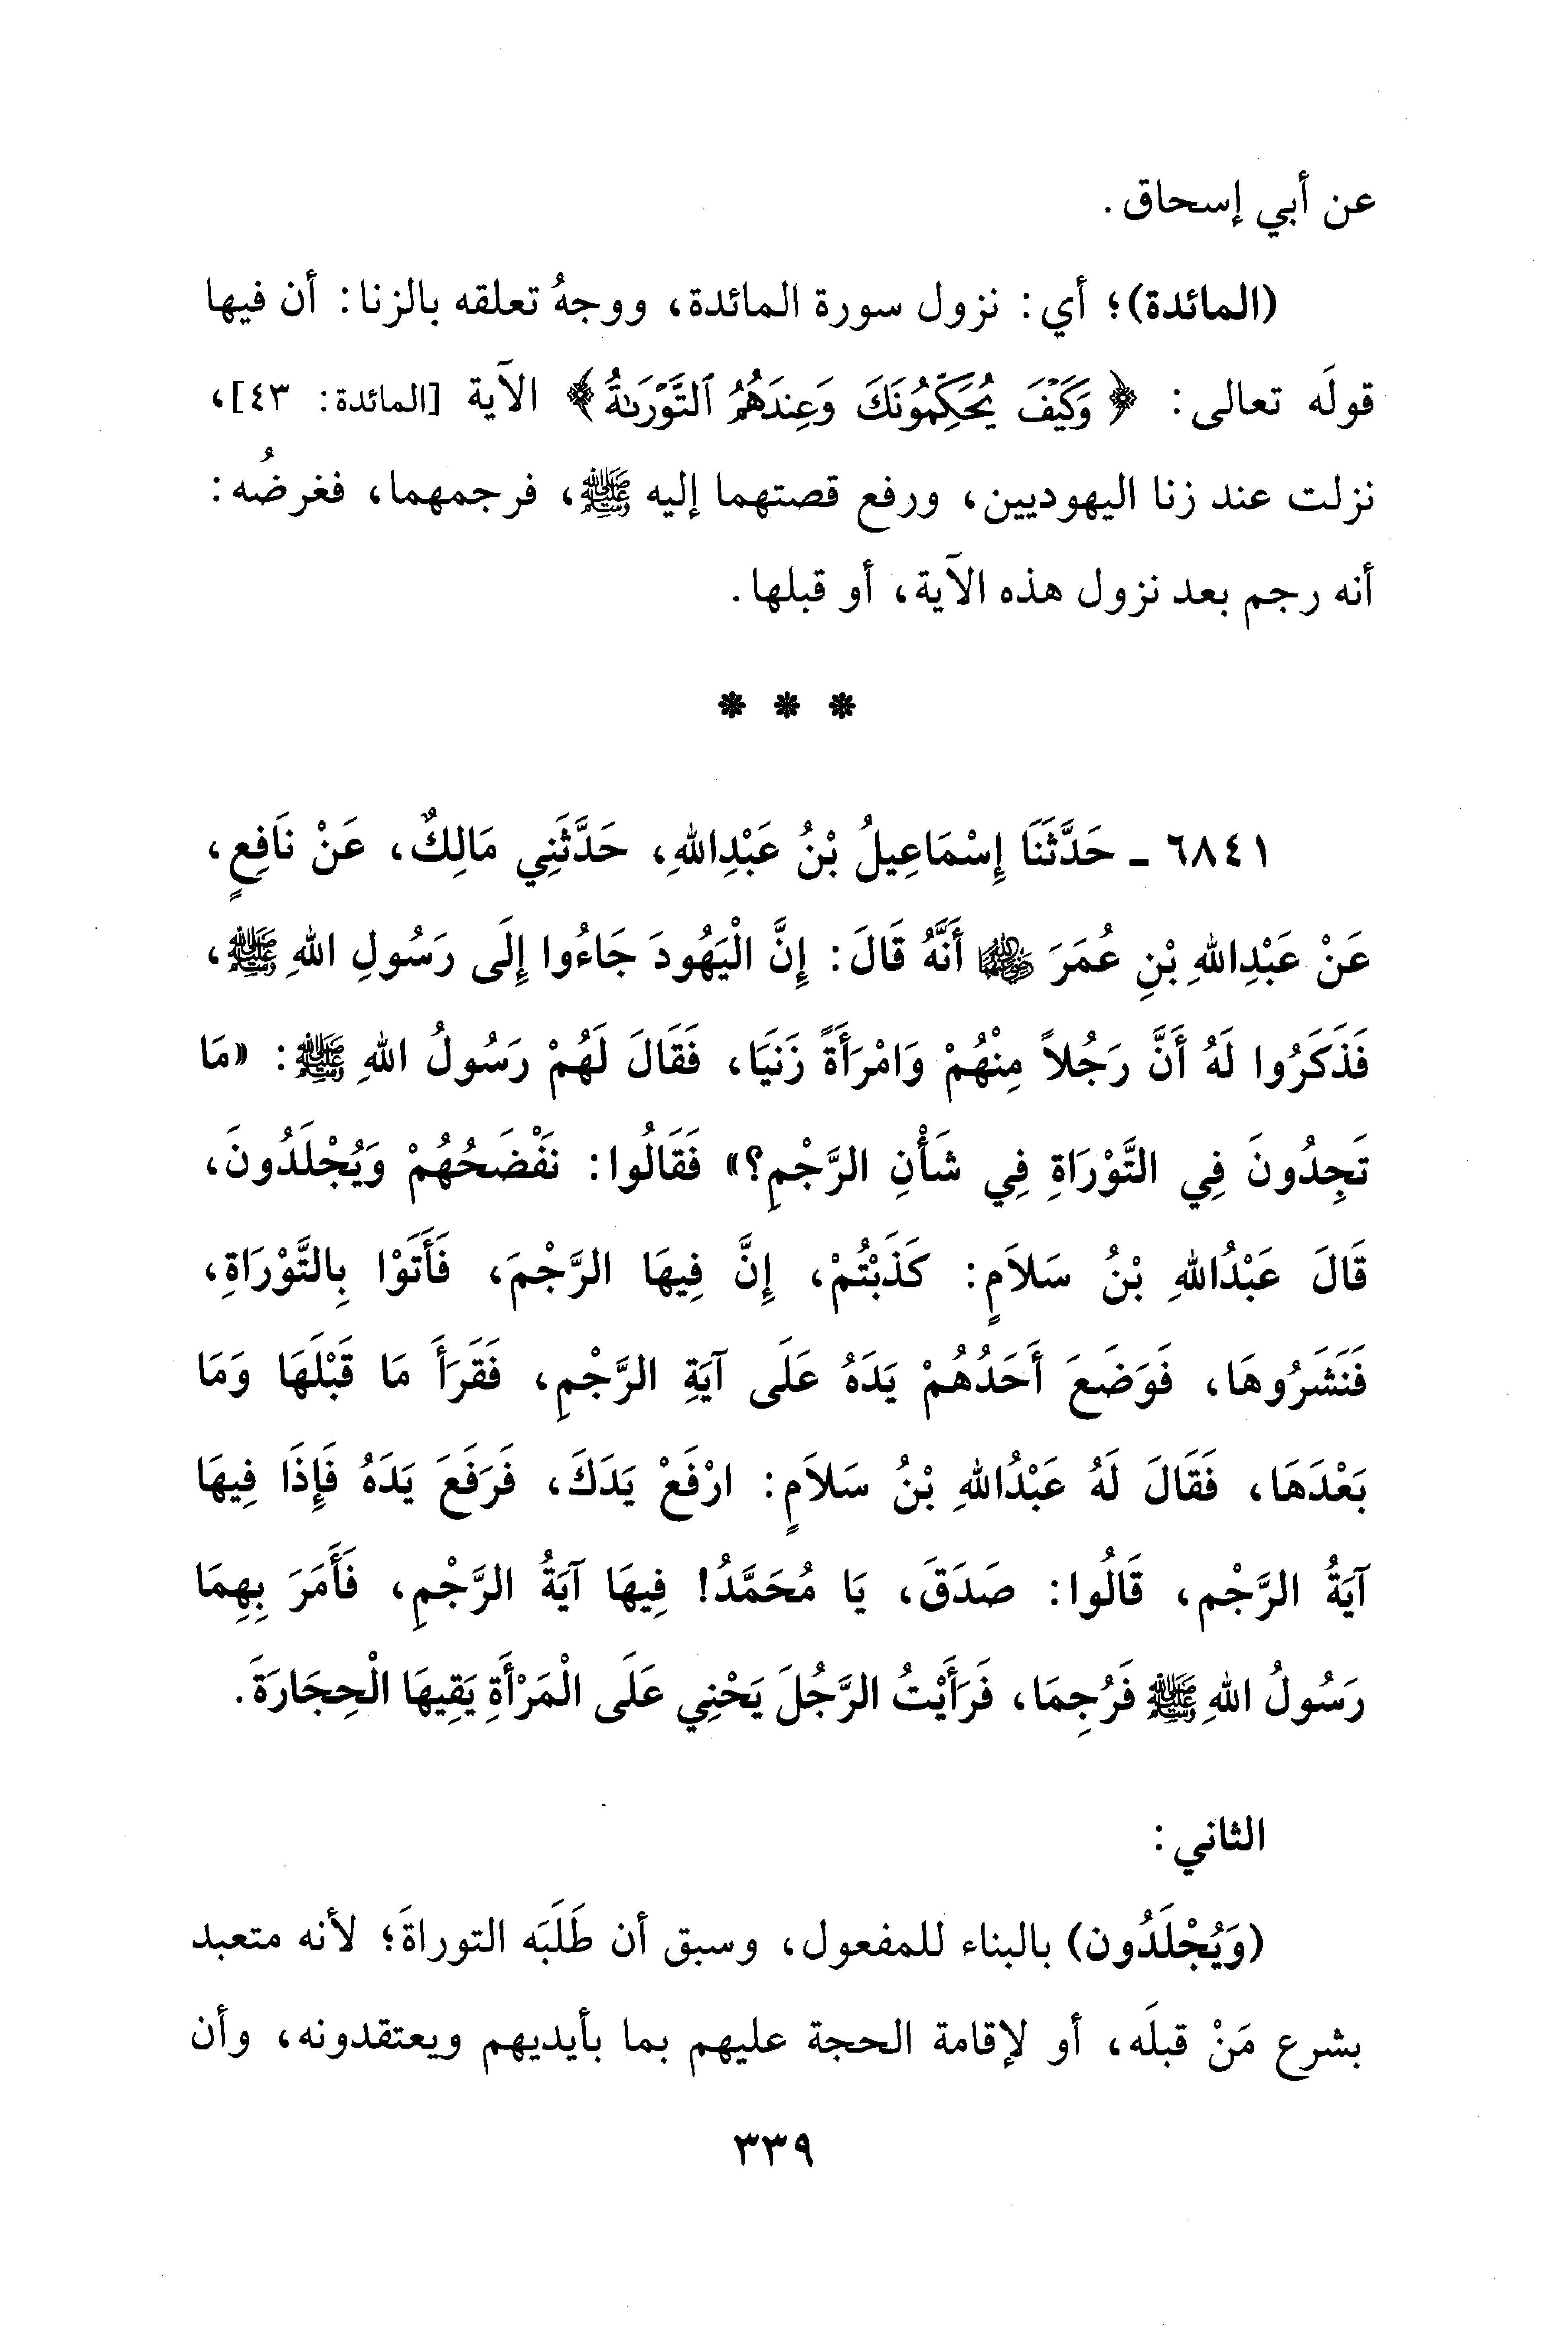 عن أبي إسحاق.
(المائدة)؛ أي: نزول سورة المائدة، ووجهُ تعلقه بالزنا: أن فيها
قولَه تعالى: ﴿وَكَيْفَ يُحَكِّمُونَكَ وَعِندَهُمُ ٱلتَّوْرَىٰةُ﴾ الآية [المائدة: ٤٣]،
نزلت عند زنا اليهوديين، ورفع قصتهما إليه ﷺ، فرجمهما، فغرضُه:
أنه رجم بعد نزول هذه الآية، أو قبلها.
* * *
٦٨٤١ ـ حَدَّثَنَا إِسْمَاعِيلُ بْنُ عَبْدِاللهِ، حَدَّثَنِي مَالِكٌ، عَنْ نَافِعٍ،
عَنْ عَبْدِاللهِ بْنِ عُمَرَ ﵄ أَنَّهُ قَالَ: إِنَّ الْيَهُودَ جَاءُوا إِلَى رَسُولِ اللهِ ﷺ،
فَذَكَرُوا لَهُ أَنَّ رَجُلاً مِنْهُمْ وَامْرَأَةً زَنَيَا، فَقَالَ لَهُمْ رَسُولُ اللهِ ﷺ: «مَا
تَجِدُونَ فِي التَّوْرَاةِ فِي شَأْنِ الرَّجْمِ؟» فَقَالُوا: نَفْضَحُهُمْ وَيُجْلَدُونَ،
قَالَ عَبْدُاللهِ بْنُ سَلاَمٍ: كَذَبْتُمْ، إِنَّ فِيهَا الرَّجْمَ، فَأَتَوْا بِالتَّوْرَاةِ،
فَنَشَرُوهَا، فَوَضَعَ أَحَدُهُمْ يَدَهُ عَلَى آيَةِ الرَّجْمِ، فَقَرَأَ مَا قَبْلَهَا وَمَا
بَعْدَهَا، فَقَالَ لَهُ عَبْدُاللهِ بْنُ سَلاَمٍ: ارْفَعْ يَدَكَ، فَرَفَعَ يَدَهُ فَإِذَا فِيهَا
آيَةُ الرَّجْمِ، قَالُوا: صَدَقَ، يَا مُحَمَّدُ! فِيهَا آيَةُ الرَّجْمِ، فَأَمَرَ بِهِمَا
رَسُولُ اللهِ ﷺ فَرُجِمَا، فَرَأَيْتُ الرَّجُلَ يَحْنِي عَلَى الْمَرْأَةِ يَقِيهَا الْحِجَارَةَ.
الثاني:
(وَيُجْلَدُون) بالبناء للمفعول، وسبق أن طَلَبَه التوراةَ؛ لأنه متعبد
بشرع مَنْ قبلَه، أو لإقامة الحجة عليهم بما بأيديهم ويعتقدونه، وأن
٣٣٩